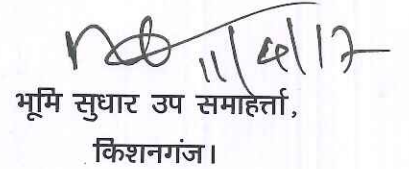 11/4/17
भूमि सुधार उप समाहर्त्ता,
किशनगंज।